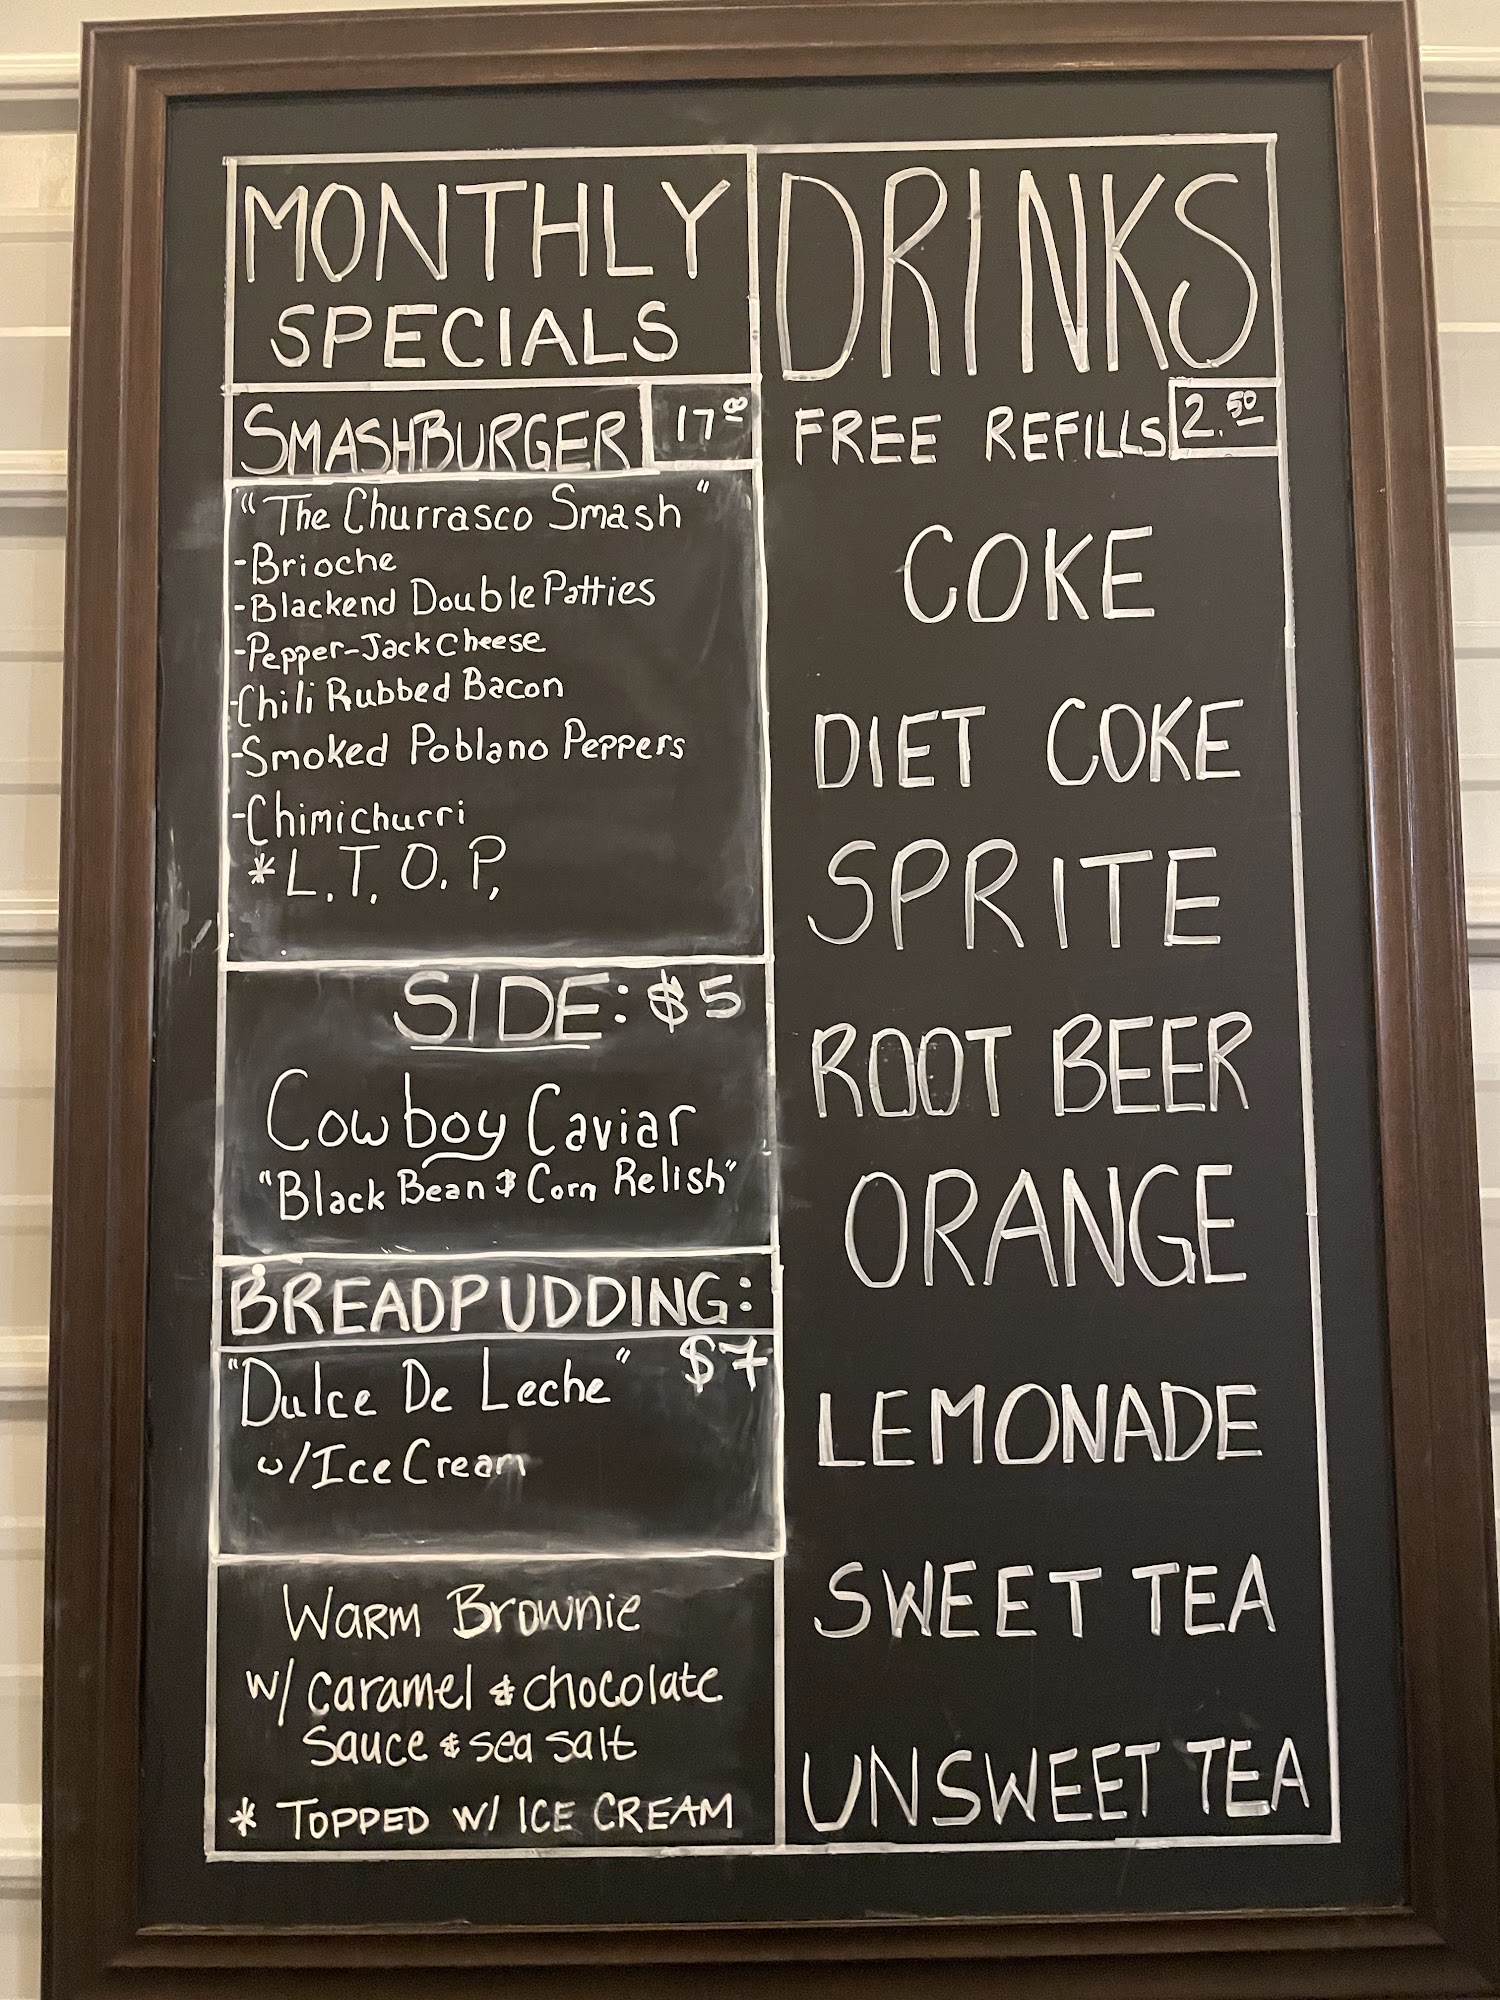 MONTHLY
SPECIALS
SMASHBURGER 17.00
"The Churrasco Smash"
-Brioche
-Blackend Double Patties
-Pepper-Jack Cheese
-Chili Rubbed Bacon
-Smoked Poblano Peppers
-Chimichurri
*L.T.O.P.
SIDE: $5
Cowboy Caviar
"Black Bean & Corn Relish"
BREADPUDDING:
"Dulce De Leche" $7
w/Ice Cream
Warm Brownie
w/ caramel & chocolate
sauce & sea salt
* TOPPED W/ ICE CREAM
DRINKS
FREE REFILLS 2.50
COKE
DIET COKE
SPRITE
ROOT BEER
ORANGE
LEMONADE
SWEET TEA
UNSWEET TEA